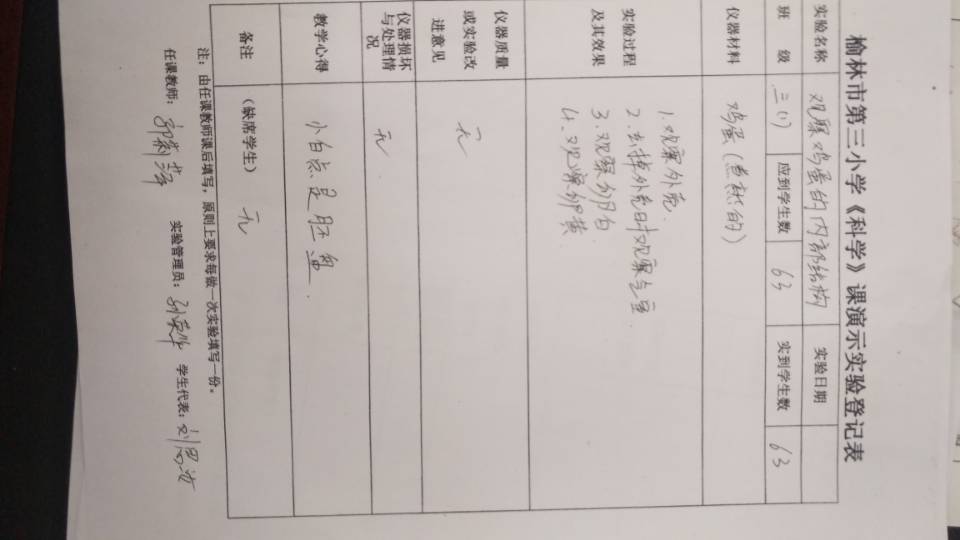 榆林市第三小学《科学》课演示实验登记表
实验名称 观察鸡蛋的内部结构 实验日期
班级 三(1) 应到学生数 63 实到学生数 63
仪器材料 鸡蛋(煮熟的)
实验过程
及其效果
1.观察外壳.
2.去掉外壳时观察气室
3.观察卵白
4.观察卵黄
仪器质量
或实验改
进意见
无
仪器损坏
与处理情
况
无
教学心得 小白点是胚盘.
备注 (缺席学生) 无
注:由任课教师课后填写,原则上要求每做一次实验填写一份。
任课教师: 实验管理员: 学生代表: